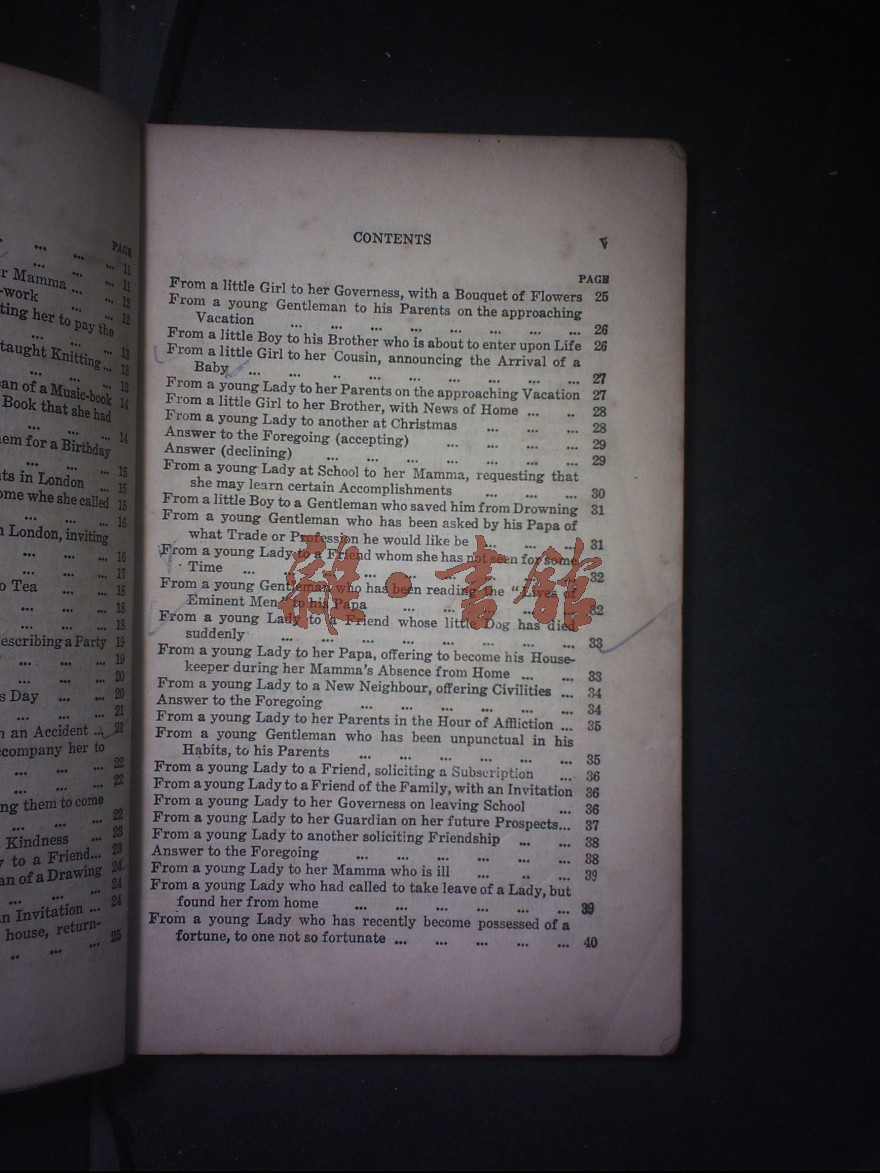 PAGE
11
r Mamma ... 11
-work 12
ting her to pay the 12
13
taught Knitting... 13
13
an of a Music-book 14
Book that she had
14
em for a Birthday
15
ts in London ... 15
ome whe she called 15
16
London, inviting
16
17
o Tea ... 18
18
18
escribing a Party 19
19
20
s Day ... 20
21
n an Accident .. 21
ccompany her to
22
22
ng them to come
22
Kindness ... 23
to a Friend... 23
an of a Drawing 24
24
n Invitation ... 24
house, return-
25
CONTENTS v
PAGE
From a little Girl to her Governess, with a Bouquet of Flowers 25
From a young Gentleman to his Parents on the approaching
Vacation ... ... ... ... ... ... ... ... 26
From a little Boy to his Brother who is about to enter upon Life 26
From a little Girl to her Cousin, announcing the Arrival of a
Baby ... ... .. ... ... ... ... ... ... 27
From a young Lady to her Parents on the approaching Vacation 27
From a little Girl to her Brother, with News of Home ... .. 28
From a young Lady to another at Christmas ... ... ... 28
Answer to the Foregoing (accepting) ... ... ... ... 29
Answer (declining) ... ... ... ... ... ... ... 29
From a young Lady at School to her Mamma, requesting that
she may learn certain Accomplishments ... ... ... 30
From a little Boy to a Gentleman who saved him from Drowning 31
From a young Gentleman who has been asked by his Papa of
what Trade or Profession he would like be ... ... ... 31
From a young Lady to a Friend whom she has not seen for some
Time ... ... ... ... ... ... ... ... ... 32
From a young Gentleman who has been reading the "Lives of
Eminent Men" to his Papa ... ... ... ... ... 32
From a young Lady to a Friend whose little Dog has died
suddenly ... ... ... ... ... ... ... ... 33
From a young Lady to her Papa, offering to become his House-
keeper during her Mamma's Absence from Home ... ... 33
From a young Lady to a New Neighbour, offering Civilities ... 34
Answer to the Foregoing ... ... ... ... ... ... 34
From a young Lady to her Parents in the Hour of Affliction ... 35
From a young Gentleman who has been unpunctual in his
Habits, to his Parents ... ... ... ... ... ... 35
From a young Lady to a Friend, soliciting a Subscription ... 36
From a young Lady to a Friend of the Family, with an Invitation 36
From a young Lady to her Governess on leaving School ... 36
From a young Lady to her Guardian on her future Prospects... 37
From a young Lady to another soliciting Friendship ... ... 38
Answer to the Foregoing ... ... ... ... ... ... 38
From a young Lady to her Mamma who is ill ... .. ... 39
From a young Lady who had called to take leave of a Lady, but
found her from home ... ... ... ... ... ... 39
From a young Lady who has recently become possessed of a
fortune, to one not so fortunate ... ... ... ... ... 40
雜·書館